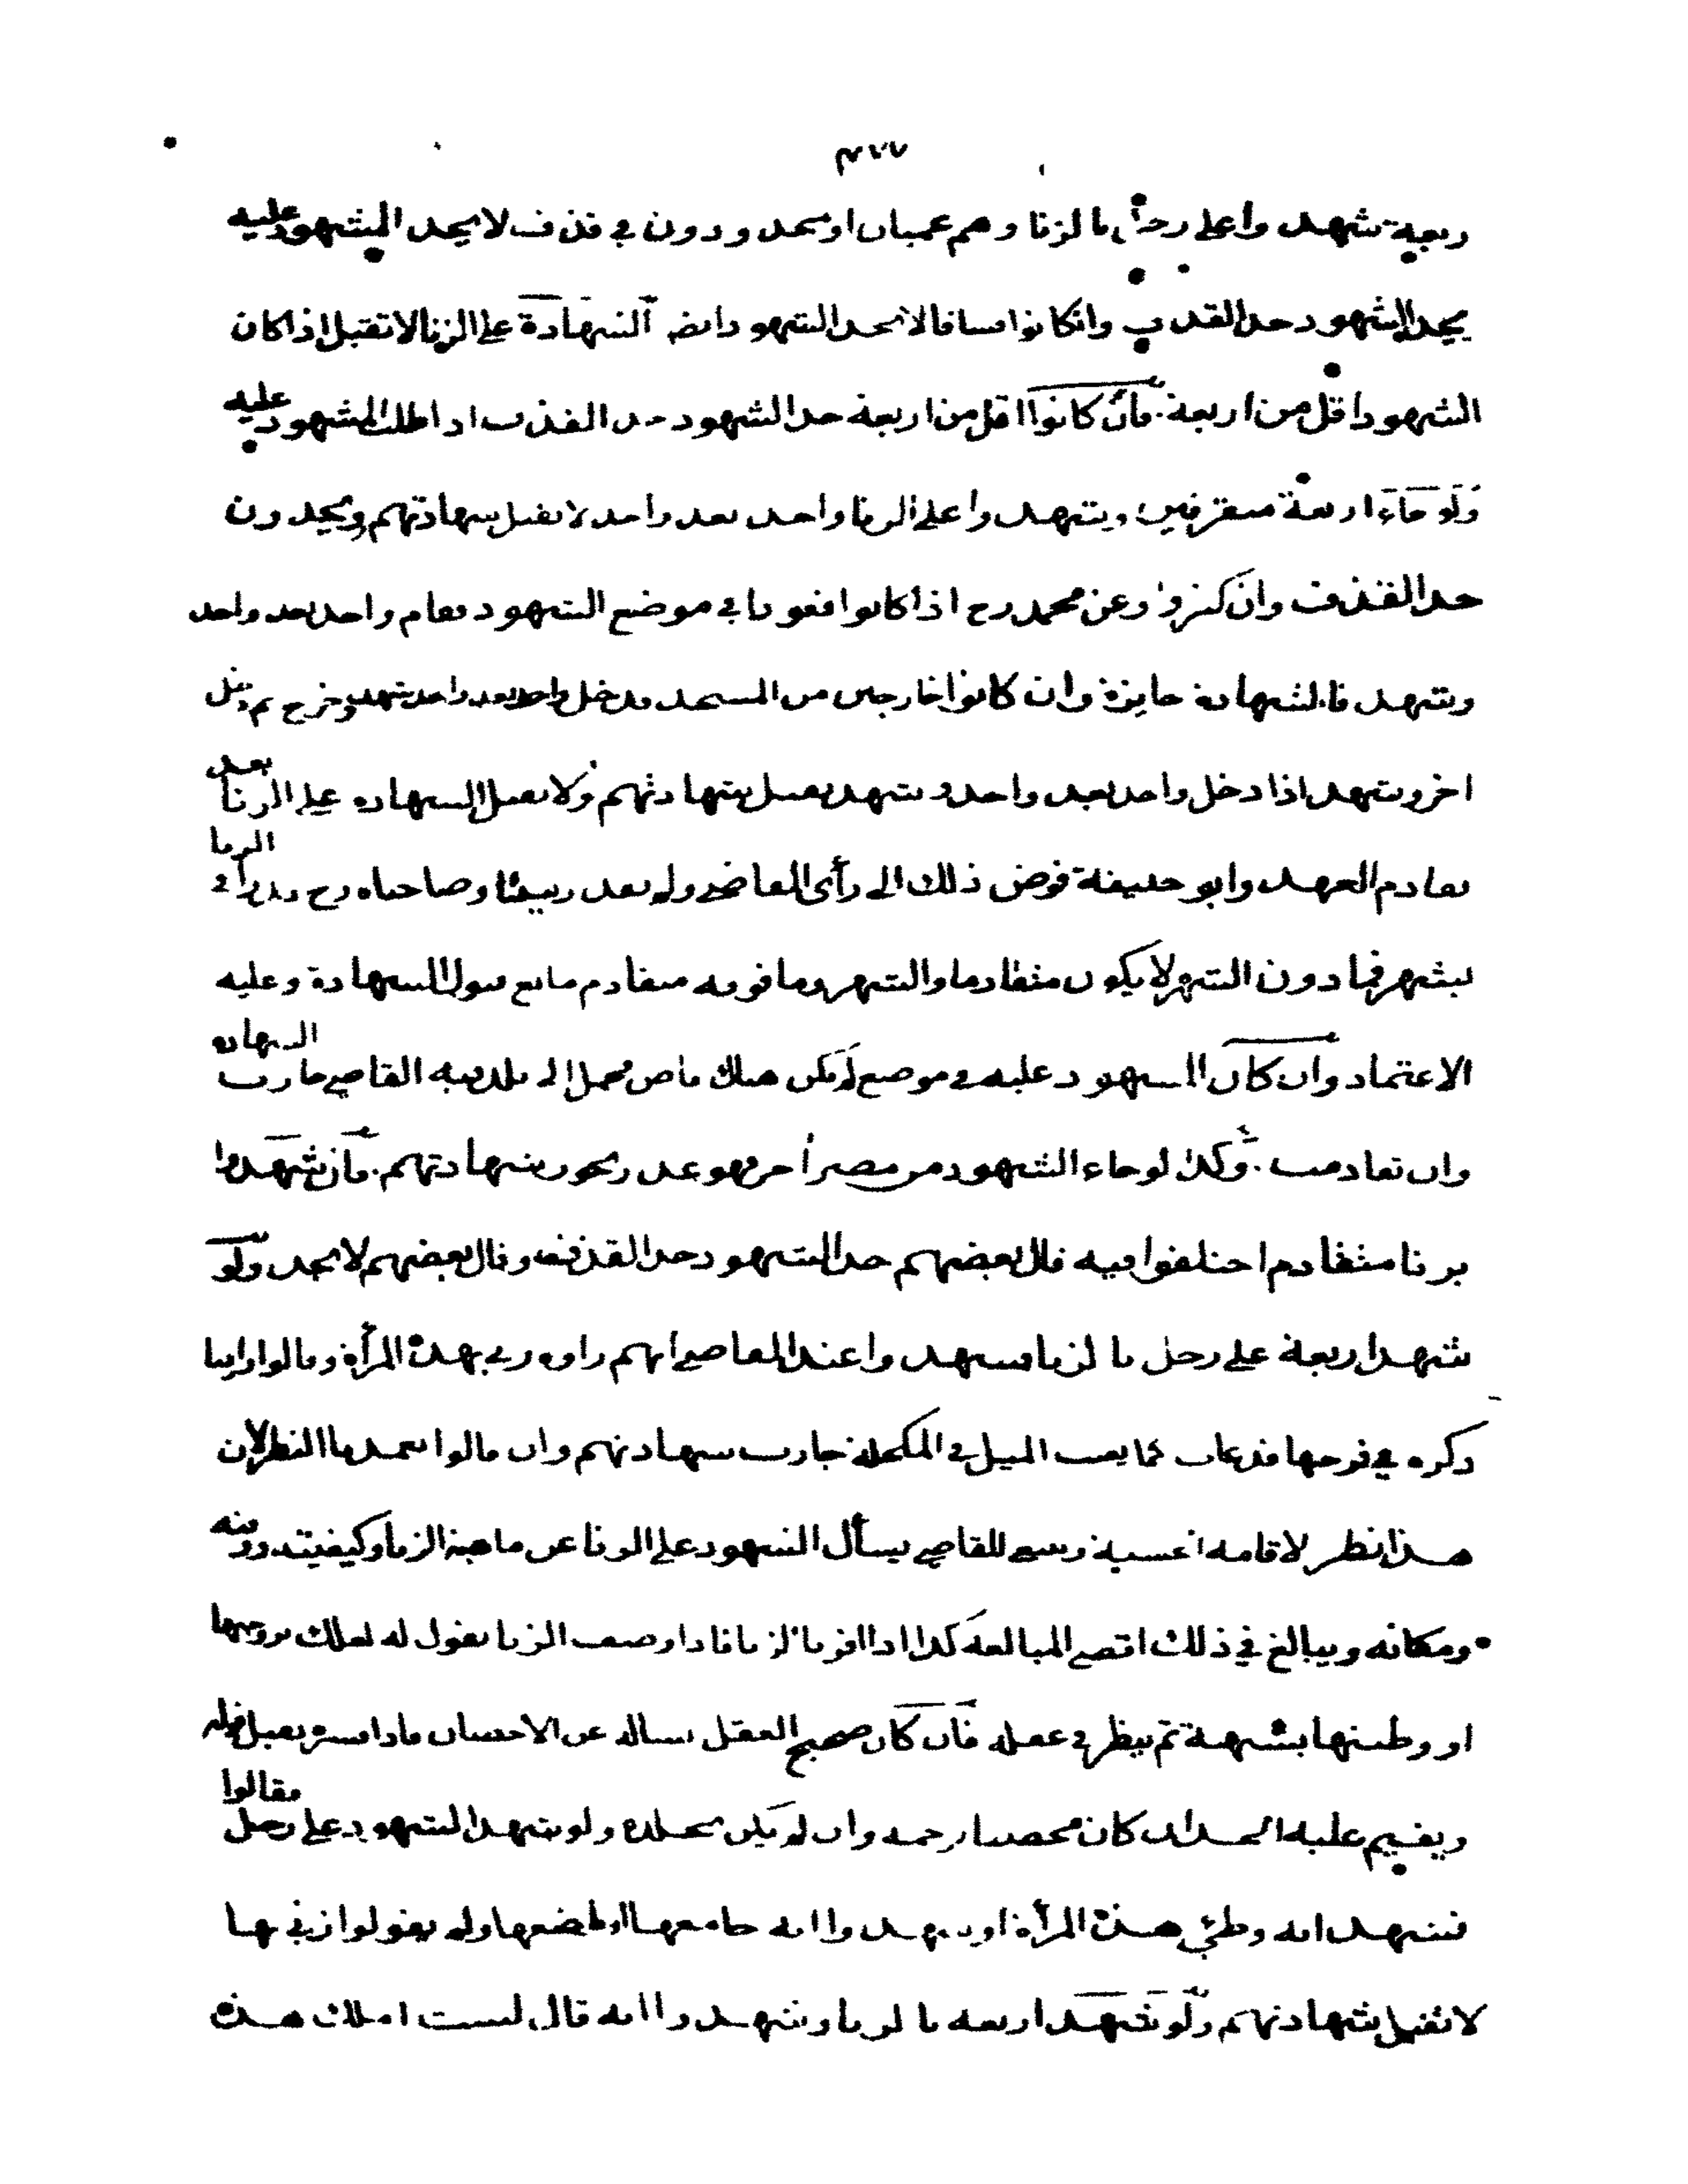 ٣٧٧
ربعة شهدوا على رجل بالزنا وهم عميان او محدودون في قذف لا يحد المشهود عليه
يحد الشهود حد القذف وان كانوا فساقا لا يحد الشهود ايضا الشهادة على الزنا لا تقبل اذا كان
الشهود اقل من اربعة فان كانوا اقل من اربعة حد الشهود حد القذف اذا طلب المشهود عليه
ولو جاء اربعة متفرقين ويشهدوا على الزنا واحد بعد واحد لا تقبل شهادتهم ويحدون
حد القذف وان كثروا وعن محمد رح اذا كانوا قعودا في موضع الشهود فقام واحد بعد واحد
ويشهد فالشهادة جايزة وان كانوا خارجين من المسجد فدخل واحد بعد واحد شهد وخرج ثم دخل
اخر ويشهد اذا دخل واحد بعد واحد ويشهد تقبل شهادتهم ولا تقبل الشهادة على الزنا بعد
تقادم العهد وابو حنيفة فوض ذلك الى رأى القاضي ولم يقدر شيئا وصاحباه رح قدرا الزنا
بشهر فما دون الشهر لا يكون متقادما والشهر وما فوقه متقادم مانع قبول الشهادة وعليه
الاعتماد وان كان المشهود عليه في موضع لم يكن هناك قاض فحمل الى بلد فيه القاضي جازت الشهادة
وان تقادمت وكذا لو جاء الشهود من مصر اخر فهو عذر ويجوز شهادتهم فان شهدوا
بزنا متقادم اختلفوا فيه قال بعضهم حد الشهود حد القذف وقال بعضهم لا يحد ولو
شهد اربعة على رجل بالزنا فشهدوا عند القاضي انهم راوه زنى بهذه المرأة وقالوا راينا
ذكره في فرجها قد غاب كما يغيب الميل في المكحلة جازت شهادتهم وان قالوا تعمدنا النظر لان
هذا نظر لاقامة الحسبة وينبغي للقاضي يسأل الشهود على الزنا عن ماهية الزنا وكيفيته ووقته
ومكانه ويبالغ في ذلك اقصى المبالغة كذا اذا اقر بالزنا فاذا وصف الزنا يقول له لعلك تزوجتها
او وطئتها بشبهة ثم ينظر في عقله فان كان صحيح العقل يساله عن الاحصان فاذا فسره يقبل قوله
ويقيم عليه الحد ان كان محصنا رجمه وان لم يكن يجلده ولو شهد الشهود على رجل فقالوا
نشهد انه وطئ هذه المرأة او يشهدوا انه جامعها او باضعها ولم يقولوا زنى بها
لا تقبل شهادتهم ولو شهد اربعة بالزنا وشهدوا انه قال لست املك هذه